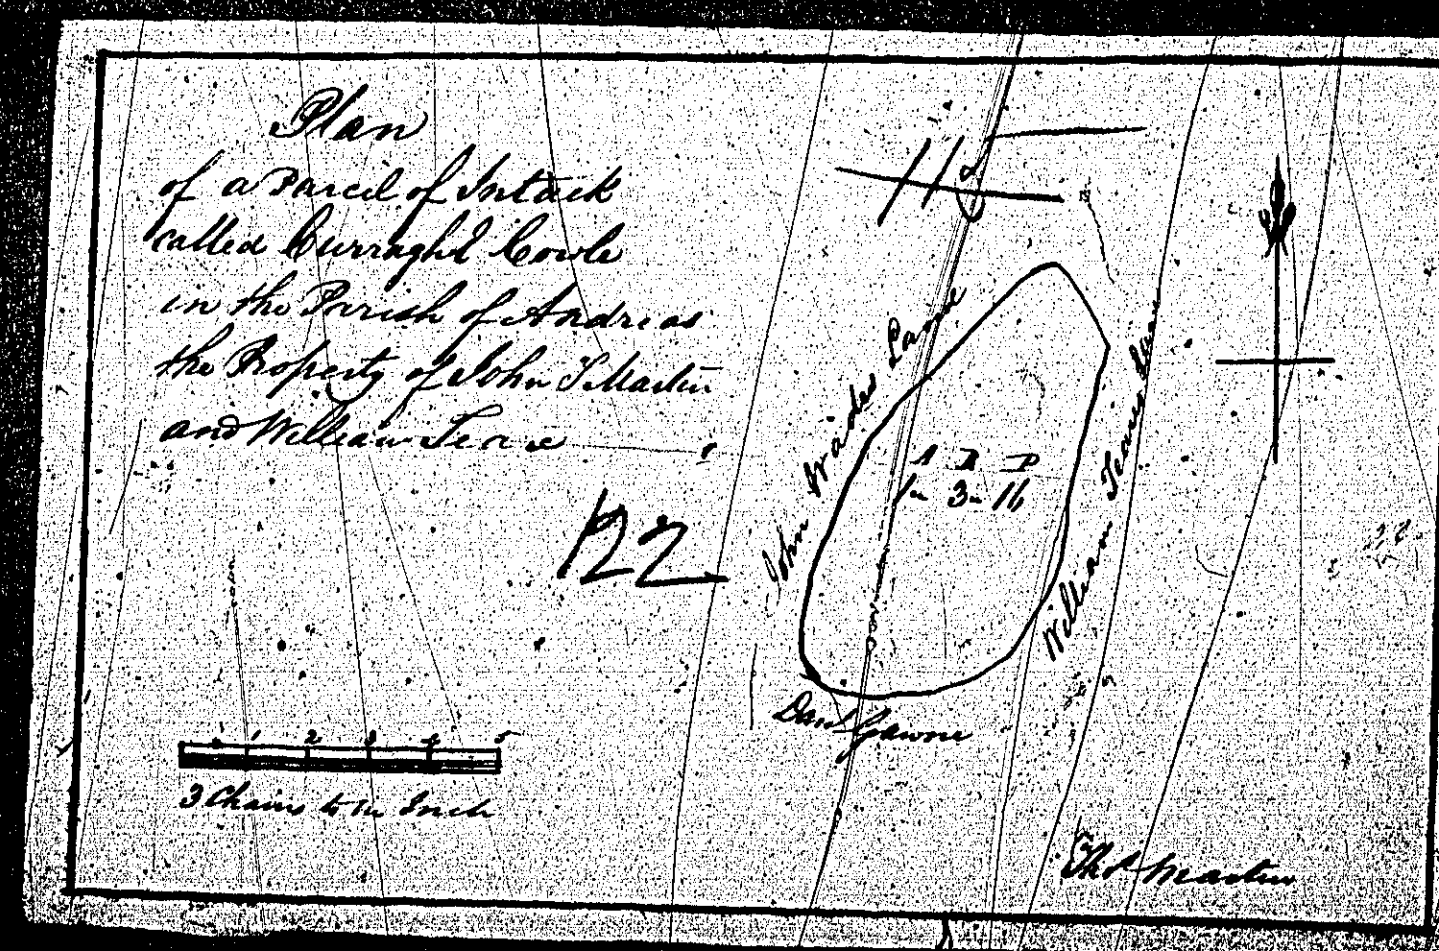 Plan
of a Parcel of Intack
called Curraghd Cowle
in the Parish of Andreas
the Property of John T Martin
and William Teare
122
John Wades Land
A R P
1 - 3 - 16
William Teares Land
Danl Gawne
1 2 3 4 5
3 Chains to an Inch
Thos Martin